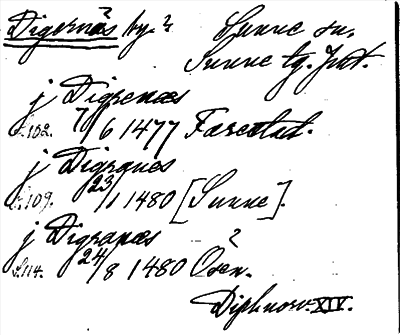 Digernäs by.? Sunne sn.
Sunne tg. Jmt.
j Digrenæs
s.102. 7/6 1477 Færestad.
j Digranes
s.109. 23/1 1480 [Sunne].
j Digranæs
s.114. 24/8 1480 Osen.?
Diplnorv. XIV.